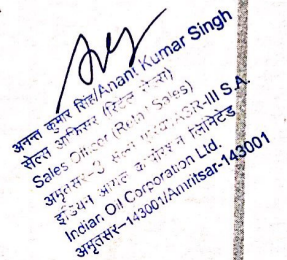 अनन्त कुमार सिंह/Anant Kumar Singh
सेल्स आफिसर (रिटेल सेल्स)
Sales Officer (Retail Sales)
अमृतसर-3 ASR-III S.A.
इंडियन आयल कार्पोरेशन लिमिटेड
Indian Oil Corporation Ltd.
अमृतसर-143001/Amritsar-143001